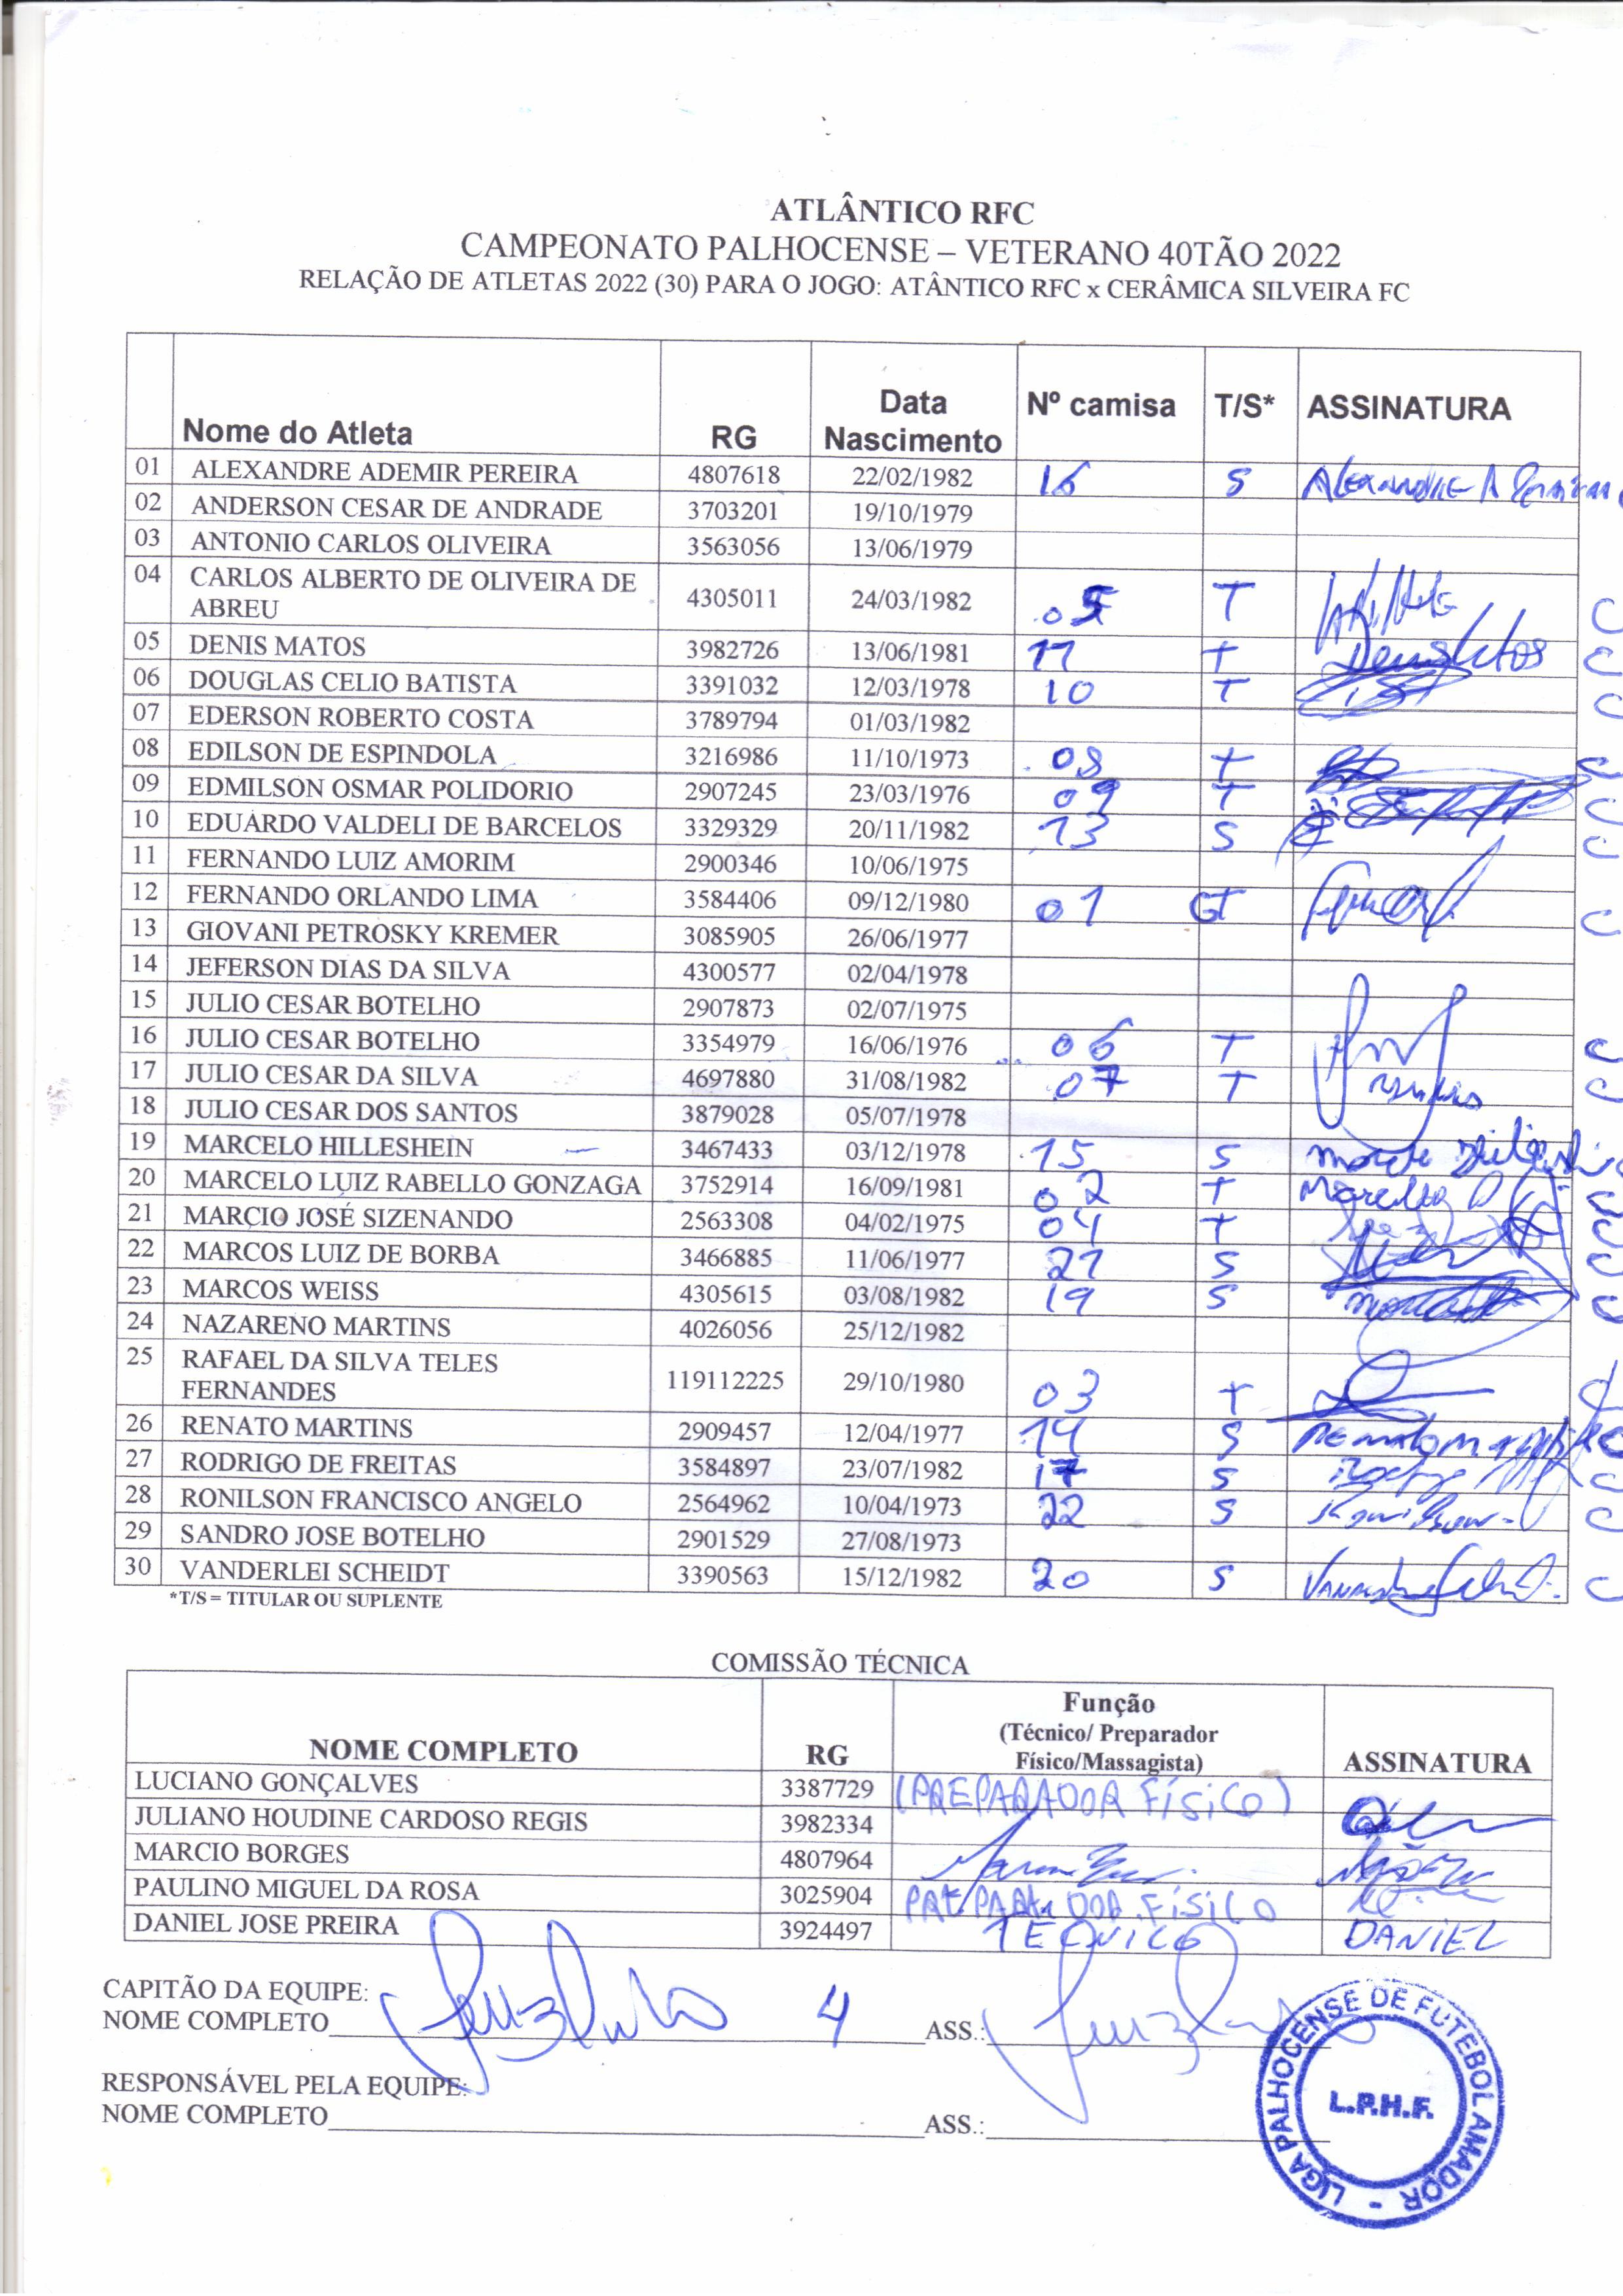 ATLÂNTICO RFC
CAMPEONATO PALHOCENSE – VETERANO 40TÃO 2022
RELAÇÃO DE ATLETAS 2022 (30) PARA O JOGO: ATÂNTICO RFC x CERÂMICA SILVEIRA FC
Nome do Atleta RG Data Nascimento Nº camisa T/S* ASSINATURA
01 ALEXANDRE ADEMIR PEREIRA 4807618 22/02/1982 16 S ALEXANDRE A
02 ANDERSON CESAR DE ANDRADE 3703201 19/10/1979
03 ANTONIO CARLOS OLIVEIRA 3563056 13/06/1979
04 CARLOS ALBERTO DE OLIVEIRA DE
ABREU 4305011 24/03/1982 05 T C
05 DENIS MATOS 3982726 13/06/1981 11 T C
06 DOUGLAS CELIO BATISTA 3391032 12/03/1978 10 T C
07 EDERSON ROBERTO COSTA 3789794 01/03/1982
08 EDILSON DE ESPINDOLA 3216986 11/10/1973 08 T C
09 EDMILSON OSMAR POLIDORIO 2907245 23/03/1976 09 T C
10 EDUARDO VALDELI DE BARCELOS 3329329 20/11/1982 13 S C
11 FERNANDO LUIZ AMORIM 2900346 10/06/1975
12 FERNANDO ORLANDO LIMA 3584406 09/12/1980 01 GT C
13 GIOVANI PETROSKY KREMER 3085905 26/06/1977
14 JEFERSON DIAS DA SILVA 4300577 02/04/1978
15 JULIO CESAR BOTELHO 2907873 02/07/1975
16 JULIO CESAR BOTELHO 3354979 16/06/1976 06 T C
17 JULIO CESAR DA SILVA 4697880 31/08/1982 07 T C
18 JULIO CESAR DOS SANTOS 3879028 05/07/1978
19 MARCELO HILLESHEIN 3467433 03/12/1978 15 S C
20 MARCELO LUIZ RABELLO GONZAGA 3752914 16/09/1981 02 T Marcelo C
21 MARCIO JOSÉ SIZENANDO 2563308 04/02/1975 04 T C
22 MARCOS LUIZ DE BORBA 3466885 11/06/1977 21 S C
23 MARCOS WEISS 4305615 03/08/1982 19 S C
24 NAZARENO MARTINS 4026056 25/12/1982
25 RAFAEL DA SILVA TELES
FERNANDES 119112225 29/10/1980 03 T
26 RENATO MARTINS 2909457 12/04/1977 14 S C
27 RODRIGO DE FREITAS 3584897 23/07/1982 17 S C
28 RONILSON FRANCISCO ANGELO 2564962 10/04/1973 22 S C
29 SANDRO JOSE BOTELHO 2901529 27/08/1973
30 VANDERLEI SCHEIDT 3390563 15/12/1982 20 S C
*T/S = TITULAR OU SUPLENTE
COMISSÃO TÉCNICA
NOME COMPLETO RG Função (Técnico/ Preparador Físico/Massagista) ASSINATURA
LUCIANO GONÇALVES 3387729 (PREPARADOR FÍSICO)
JULIANO HOUDINE CARDOSO REGIS 3982334
MARCIO BORGES 4807964
PAULINO MIGUEL DA ROSA 3025904 PREPARADOR FÍSICO
DANIEL JOSE PREIRA 3924497 TECNICO DANIEL
CAPITÃO DA EQUIPE:
NOME COMPLETO 4 ASS.:
RESPONSÁVEL PELA EQUIPE:
NOME COMPLETO ASS.:
LIGA PALHOCENSE DE FUTEBOL AMADOR -
L.P.H.F.